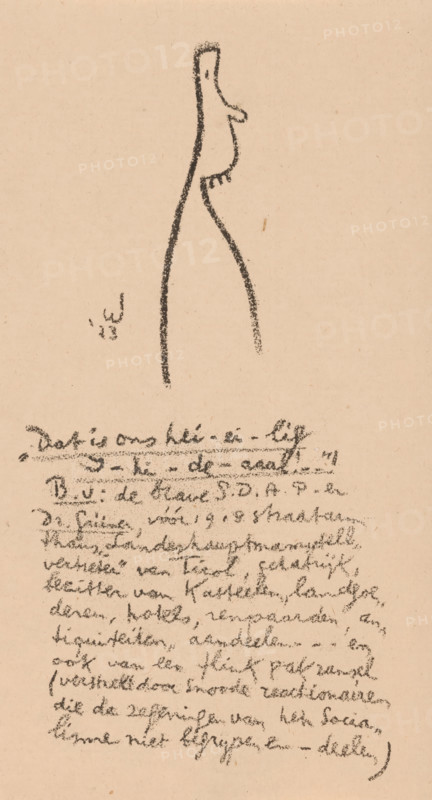 '23
„Dat is ons hei-ei-lig
I-hi-de-aaal!--"!
B.v.: de brave S.D.A.P.-er
Dr. Grüner, vóór 1918 straatarm
thans „Landeshauptmannstell-
vertreter" van Tirol, schatrijk,
bezitter van kasteelen, landgoe-
deren, hotels, renpaarden, an-
tiquiteiten, aandeelen --- en
ook van een flink pak ransel
(verstrekt door snoode reactionairen
die de zegeningen van het Socia-
lisme niet begrypen en - deelen)